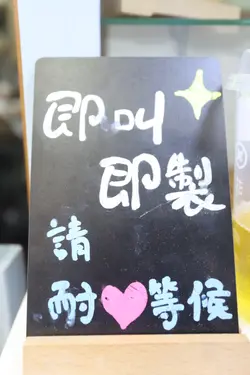 即叫
即製
請
耐❤等候